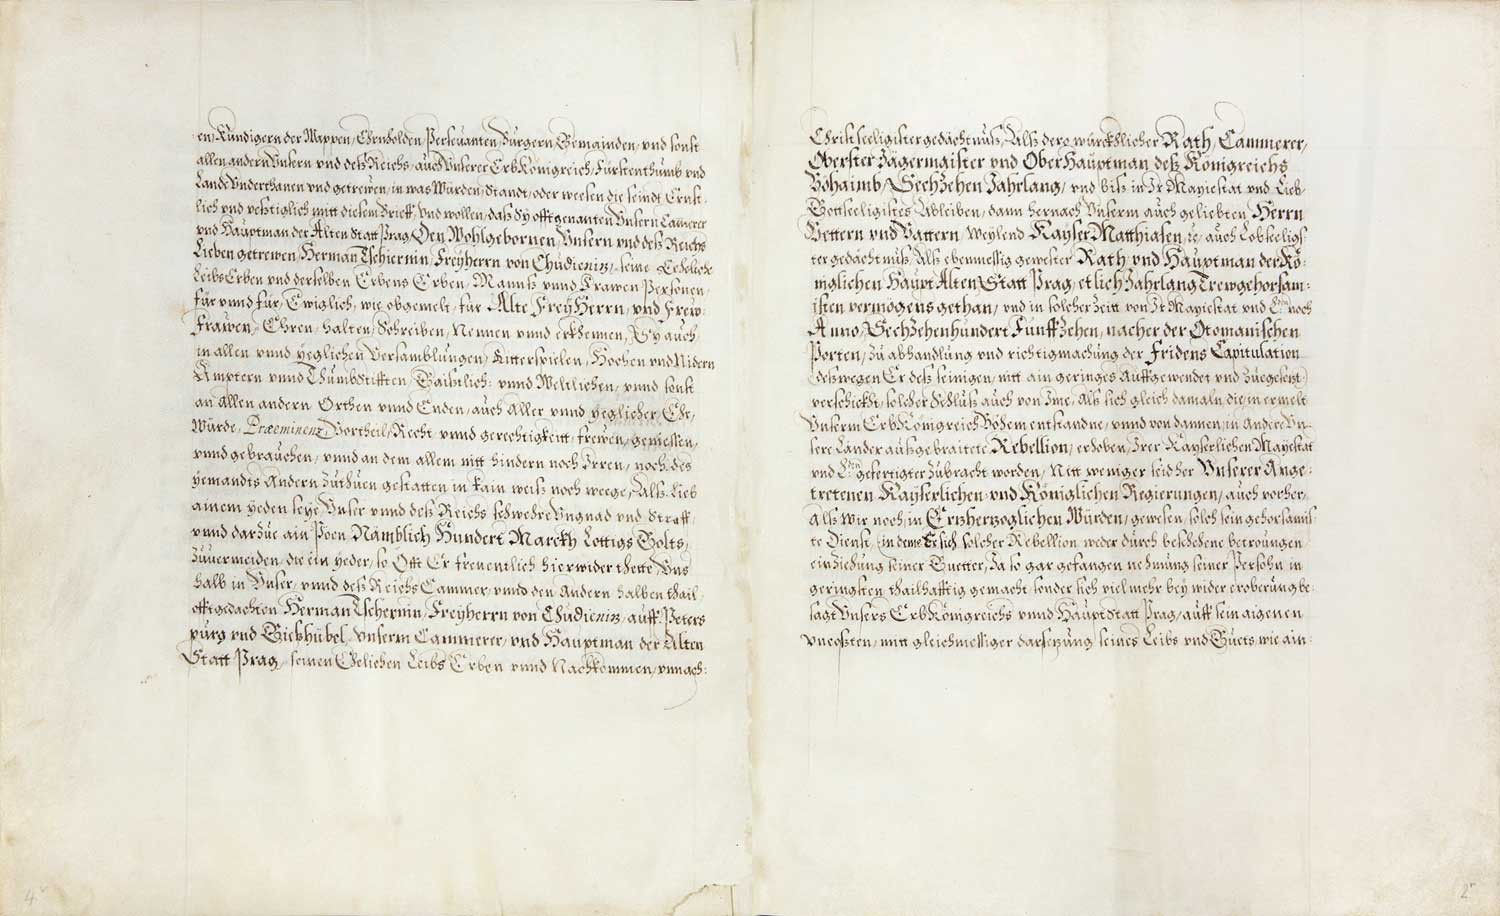 en, Kündigern der Wappen, Ehrnholden, Persevanten, Bürgern, Gemainden, vnd sonst
allen andern Vnsern vnd deß Reichs, auch Vnserer ErbKönigreich, Fürstenthumb vnd
Lande Vnderthanen vnd getrewen, in was Würden, Standt, oder weesen die seindt, Ernst-
lich vnd vesstiglich mitt diesem Brieff, Vnd wollen, daß Sy offtgenanten Vnsern Camerer
vnd Haüptman der Alten Statt Prag, Den Wohlgebornen, Vnsern vnd deß Reichs
Lieben getrewen, Herman Tschernin, Freyherrn von Chüdieniz, seine Eheliche
LeibsErben vnd derselben Erbens Erben, Mannß vnnd Frawen Persohnen,
für vnnd für, Ewiglich, wie obgemelt, für Alte FreyHerrn, vnd Frew-
Frawen, Ehren, halten, Schreiben, Nennen vnnd erkhennen, Sy auch
in allen vnnd yeglichen Versamblungen, Ritterspielen, Hochen vnd Nidern
Ämptern vnnd Thumbstifften, Gaistlich: vnnd Weltlichen, vnnd sonst
an allen andern Orthen vnnd Enden, auch Aller vnnd yeglicher, Ehr,
Würde, Præeminenz, Vortheil, Recht vnnd gerechtigkeitt, frewen, geniessen,
vnnd gebrauchen, vnnd an dem allem nitt hindern noch Irren, noch des
yemandts Andern zuthuen gestatten in kain weiß noch weege, Alß Lieb
ainem yeden seye Vnser vnnd deß Reichs schwehre Vngnad vnd Straff,
vnnd darzue ain Poen, Namblich Hundert Marckh Lottigs Golts,
zuuermeiden, die ein yeder, so Offt Er freuentlich hierwider thette, Vns
halb in Vnser, vnnd deß ReichsCammer, vnnd den Andern halben thail
offtgedachten Herman Tschernin, Freyherrn von Chüdieniz, auff Peters
purg vnd Gieshübel, Vnserm Cammerer, vnd Haüptman der Alten
Statt Prag, seinen Ehelichen Leibs Erben vnnd Nachkommen, vnnach:
4 v
Christseeligister gedächtnuß, Alß dero würckhlicher Rath, Cammerer,
Oberster Jägermaister vnd OberHaüptman deß Königreichs
Böhaimb, Sechzehen Jahrlang, vnd biß in Ir Mayiestat vnd Lieb-
Gottseeligistes Ableiben, dann hernach Vnserm auch geliebten Herrn
Vettern vnd Vattern, Weylend Kayser Matthiasen, auch Lobseeligi-
ster gedächtnuß, Alß ebenmessig gewester Rath vnd Haüptman der Kö-
niglichen Haüpt Alten Statt Prag, etlich Jahrlang Trewgehorsam-
isten vermögens gethan, vnd in solcher Zeitt von Ir Mayiestat vnd noch
Anno, Sechzehenhundert Fünffzehen, nacher der Otomanischen
Porten, zu abhandlung vnd richtigmachung der Fridens Capitulation
(deßwegen Er deß seinigen, nitt ain geringes Auffgewendet vnd zuegesetzt)
verschickht, solcher Schluß auch von Ime, Alß sich gleich damaln die in ermelt
Vnserm ErbKönigreich Böhem entstandne, vnnd von dannen, in Andere Vn-
sere Länder außgebraitete Rebellion, erhoben, Irer Kayserlichen Mayestat
vnd gefertigter zubracht worden, Nitt weniger seidher Vnserer Ange-
tretenen Kayserlichen vnd Königlichen Regierungen, auch vorher,
Alß wir noch, in Erzherzoglichen Würden, gewesen, solch sein gehorsamis-
te Dienst, in deme Er sich solcher Rebellion weder durch beschehene betroungen
einziehung seiner Guetter, Ja so gar gefangen nehmung seiner Persohn in
geringsten thailhafftig gemacht, sonder sich vielmehr bey wider eroberung be-
sagt Vnsers ErbKönigreichs vnnd HauptStatt Prag, auff sein aigenen
Vncosten, mitt gleichmessiger darsetzung seines Leibs vnd Guets, wie ain:
2 r